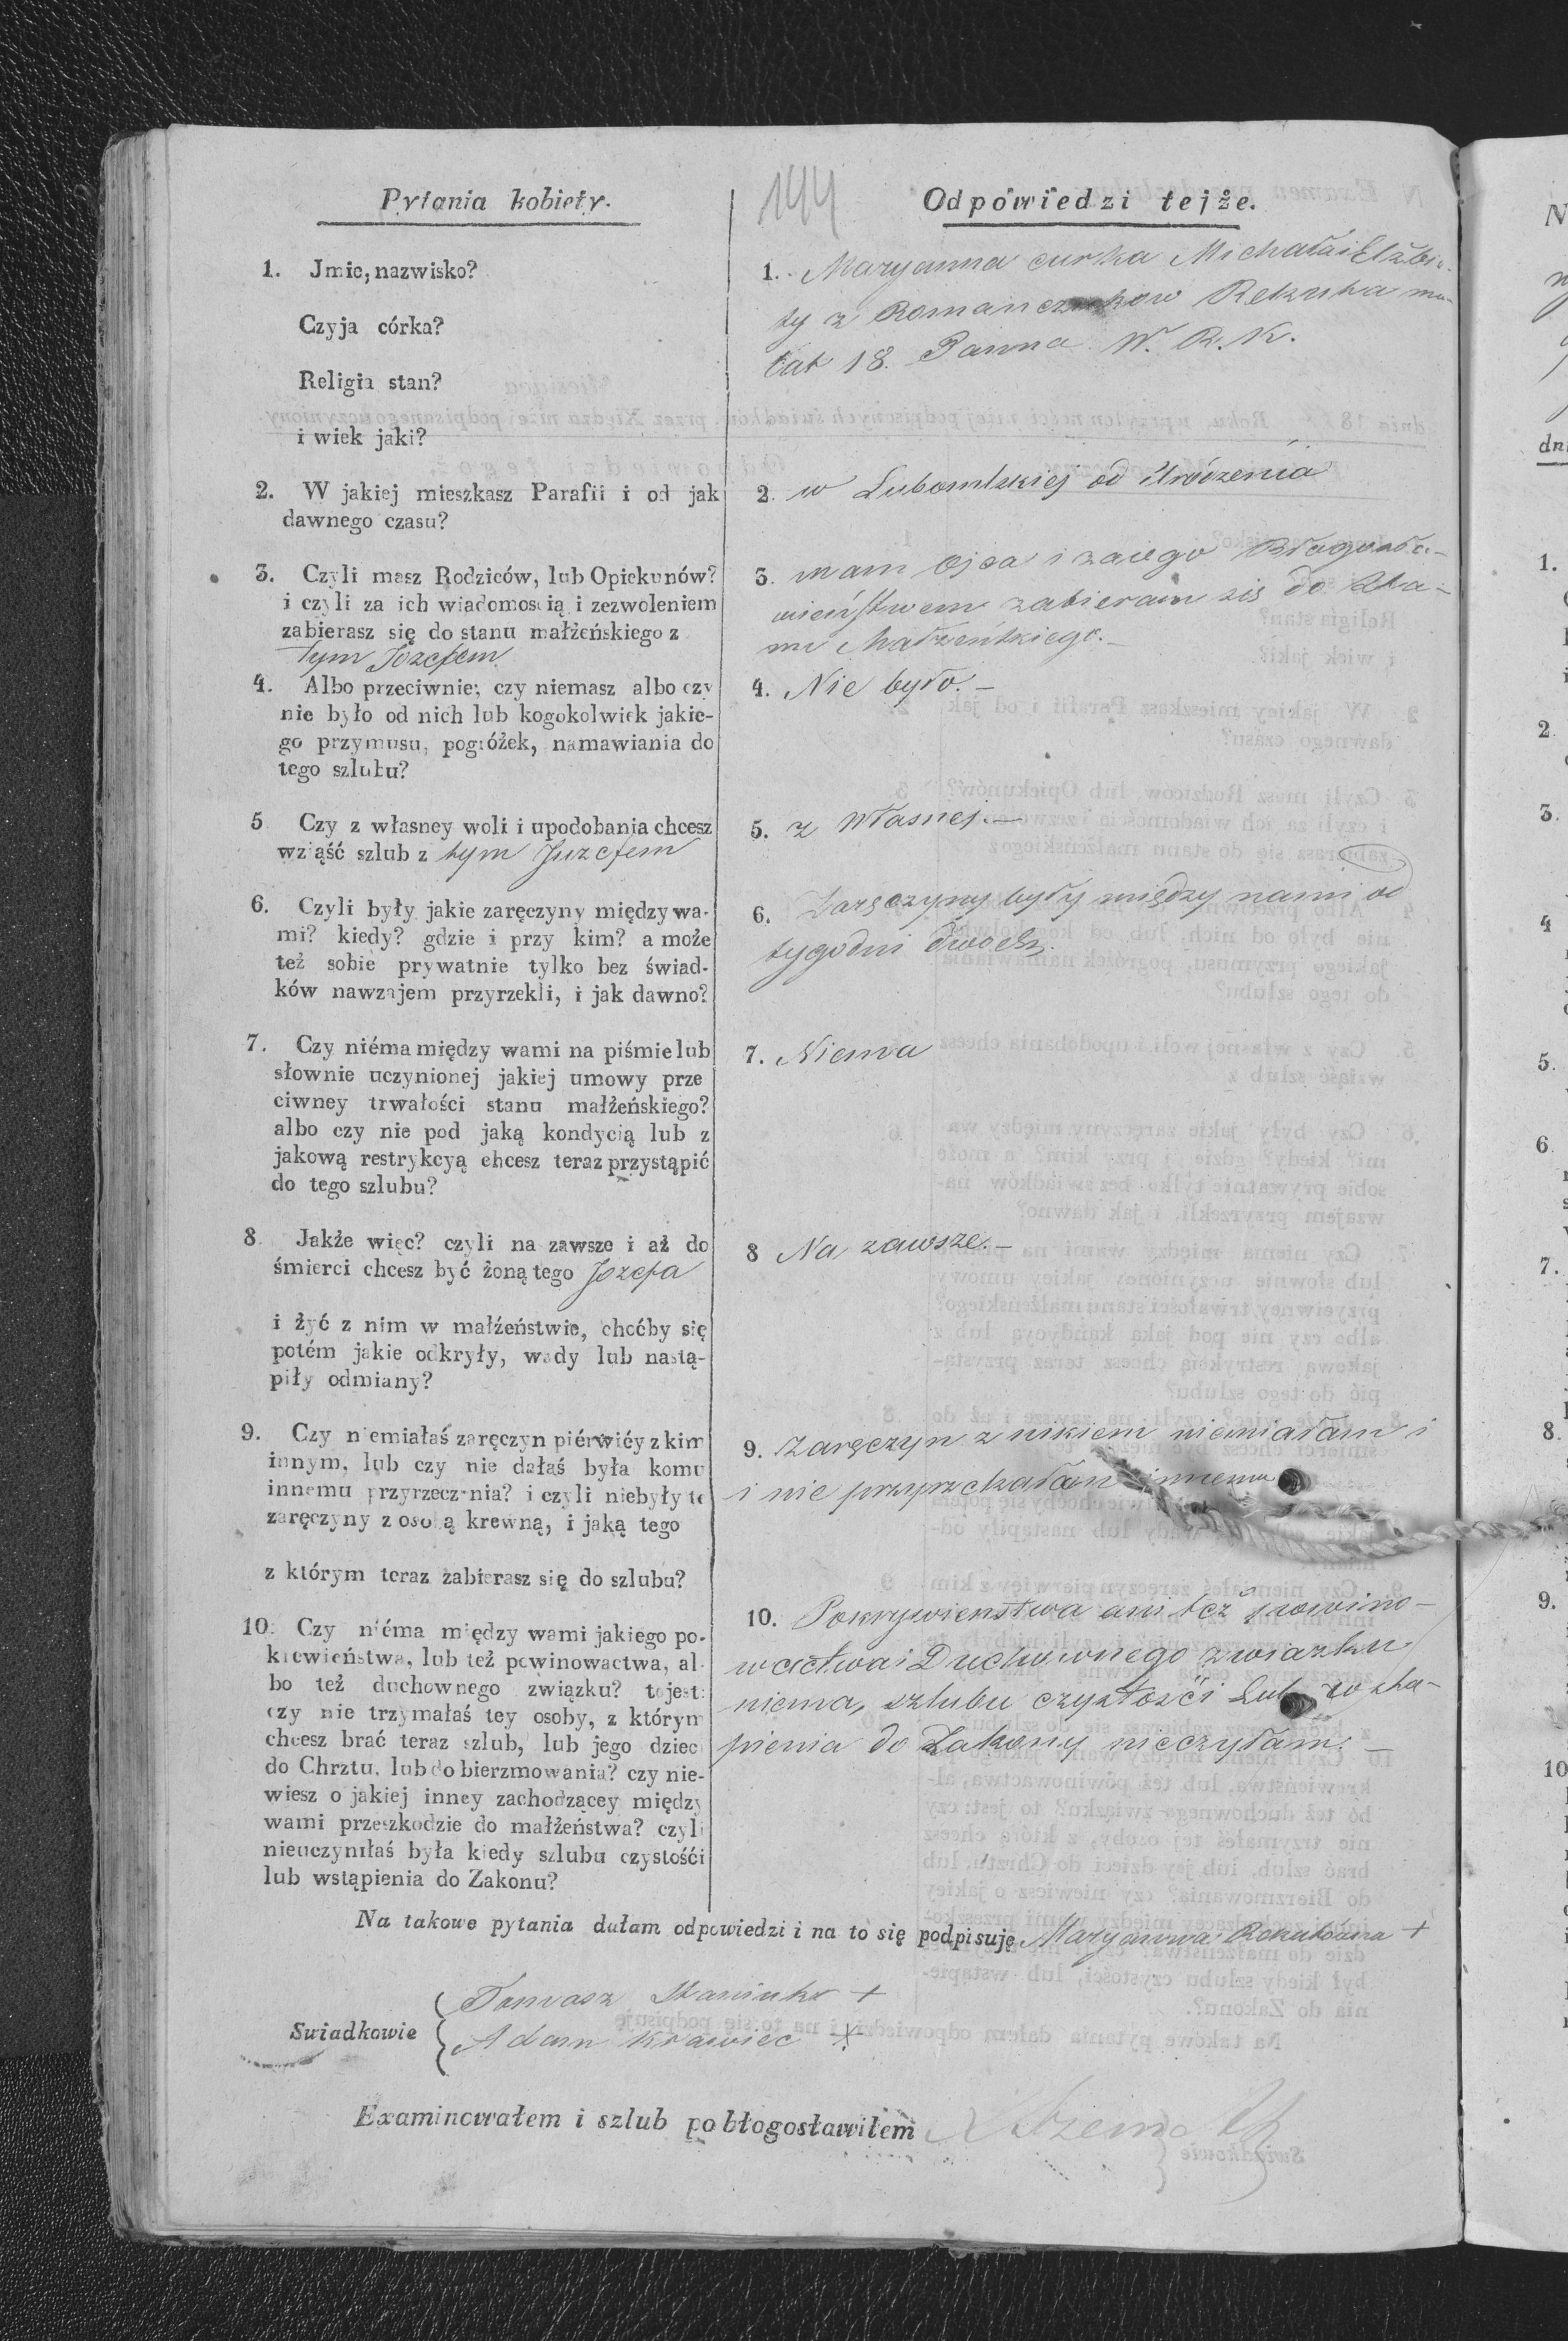 Pytania kobiety.
144
Odpowiedzi tejże.
1. Jmie, nazwisko?
Czyja córka?
Religia stan?
i wiek jaki?
1. Maryanna curka Michała i Elżbie-
ty z Romanczukow Rekuska ma
lat 18. Panna W. R. K.
2. W jakiej mieszkasz Parafii i od jak
dawnego czasu?
2. w Lubomlskiej od Urodzenia
3. Czyli masz Rodziców, lub Opiekunów?
i czyli za ich wiadomością i zezwoleniem
zabierasz się do stanu małżeńskiego z
tym Jozefem
3. mam ojca i zaiego Błogosła-
wieństwem zabieram sis do Sta-
nu Małżeńskiego.-
4. Albo przeciwnie; czy niemasz albo czy
nie było od nich lub kogokolwiek jakie-
go przymusu, pogróżek, namawiania do
tego szlubu?
4. Nie było.-
5 Czy z własney woli i upodobania chcesz
wziąść szlub z tym Juzefem
5. z Własnej.-
6. Czyli były jakie zaręczyny między wa-
mi? kiedy? gdzie i przy kim? a może
też sobie prywatnie tylko bez świad-
ków nawzajem przyrzekli, i jak dawno?
6. Zaręczyny były między nami od
tygodni dwoch.
7. Czy niéma między wami na piśmie lub
słownie uczynionej jakiej umowy prze
ciwney trwałości stanu małżeńskiego?
albo czy nie pod jaką kondycią lub z
jakową restrykcyą chcesz teraz przystąpić
do tego szlubu?
7. Niema
8. Jakże więc? czyli na zawsze i aż do
śmierci chcesz być żoną tego Jozefa
i żyć z nim w małżeństwie, choćby się
potém jakie odkryły, wady lub nastą-
piły odmiany?
8 Na zawsze.-
9. Czy niemiałaś zaręczyn piérwiéy z kim
innym, lub czy nie dałaś była komu
innemu przyrzeczenia? i czyli niebyły te
zaręczyny z osobą krewną, i jaką tego
z którym teraz zabierasz się do szlubu?
9. Zaręczyn z nikiem niemiałam i
i nie przyrzekałam innemu
10. Czy niéma między wami jakiego po-
krewieństwa, lub też powinowactwa, al-
bo też duchownego związku? to jest:
czy nie trzymałaś tey osoby, z którym
chcesz brać teraz szlub, lub jego dzieci
do Chrztu, lub do bierzmowania? czy nie-
wiesz o jakiej inney zachodzącey między
wami przeszkodzie do małżeństwa? czyli
nieuczyniłaś była kiedy szlubu czystości
lub wstąpienia do Zakonu?
10. Pokrywienstwa ani też powino-
wactwa i Duchownego zwiazku
niema, szlubu czystości Lub wsta-
pienia do Zakony nieczyłam.-
Na takowe pytania dałam odpowiedzi i na to się podpisuję Maryanna +
Swiadkowie
Tomasz +
Adam Krawiec +
Examinowałem i szlub pobłogosławiłem